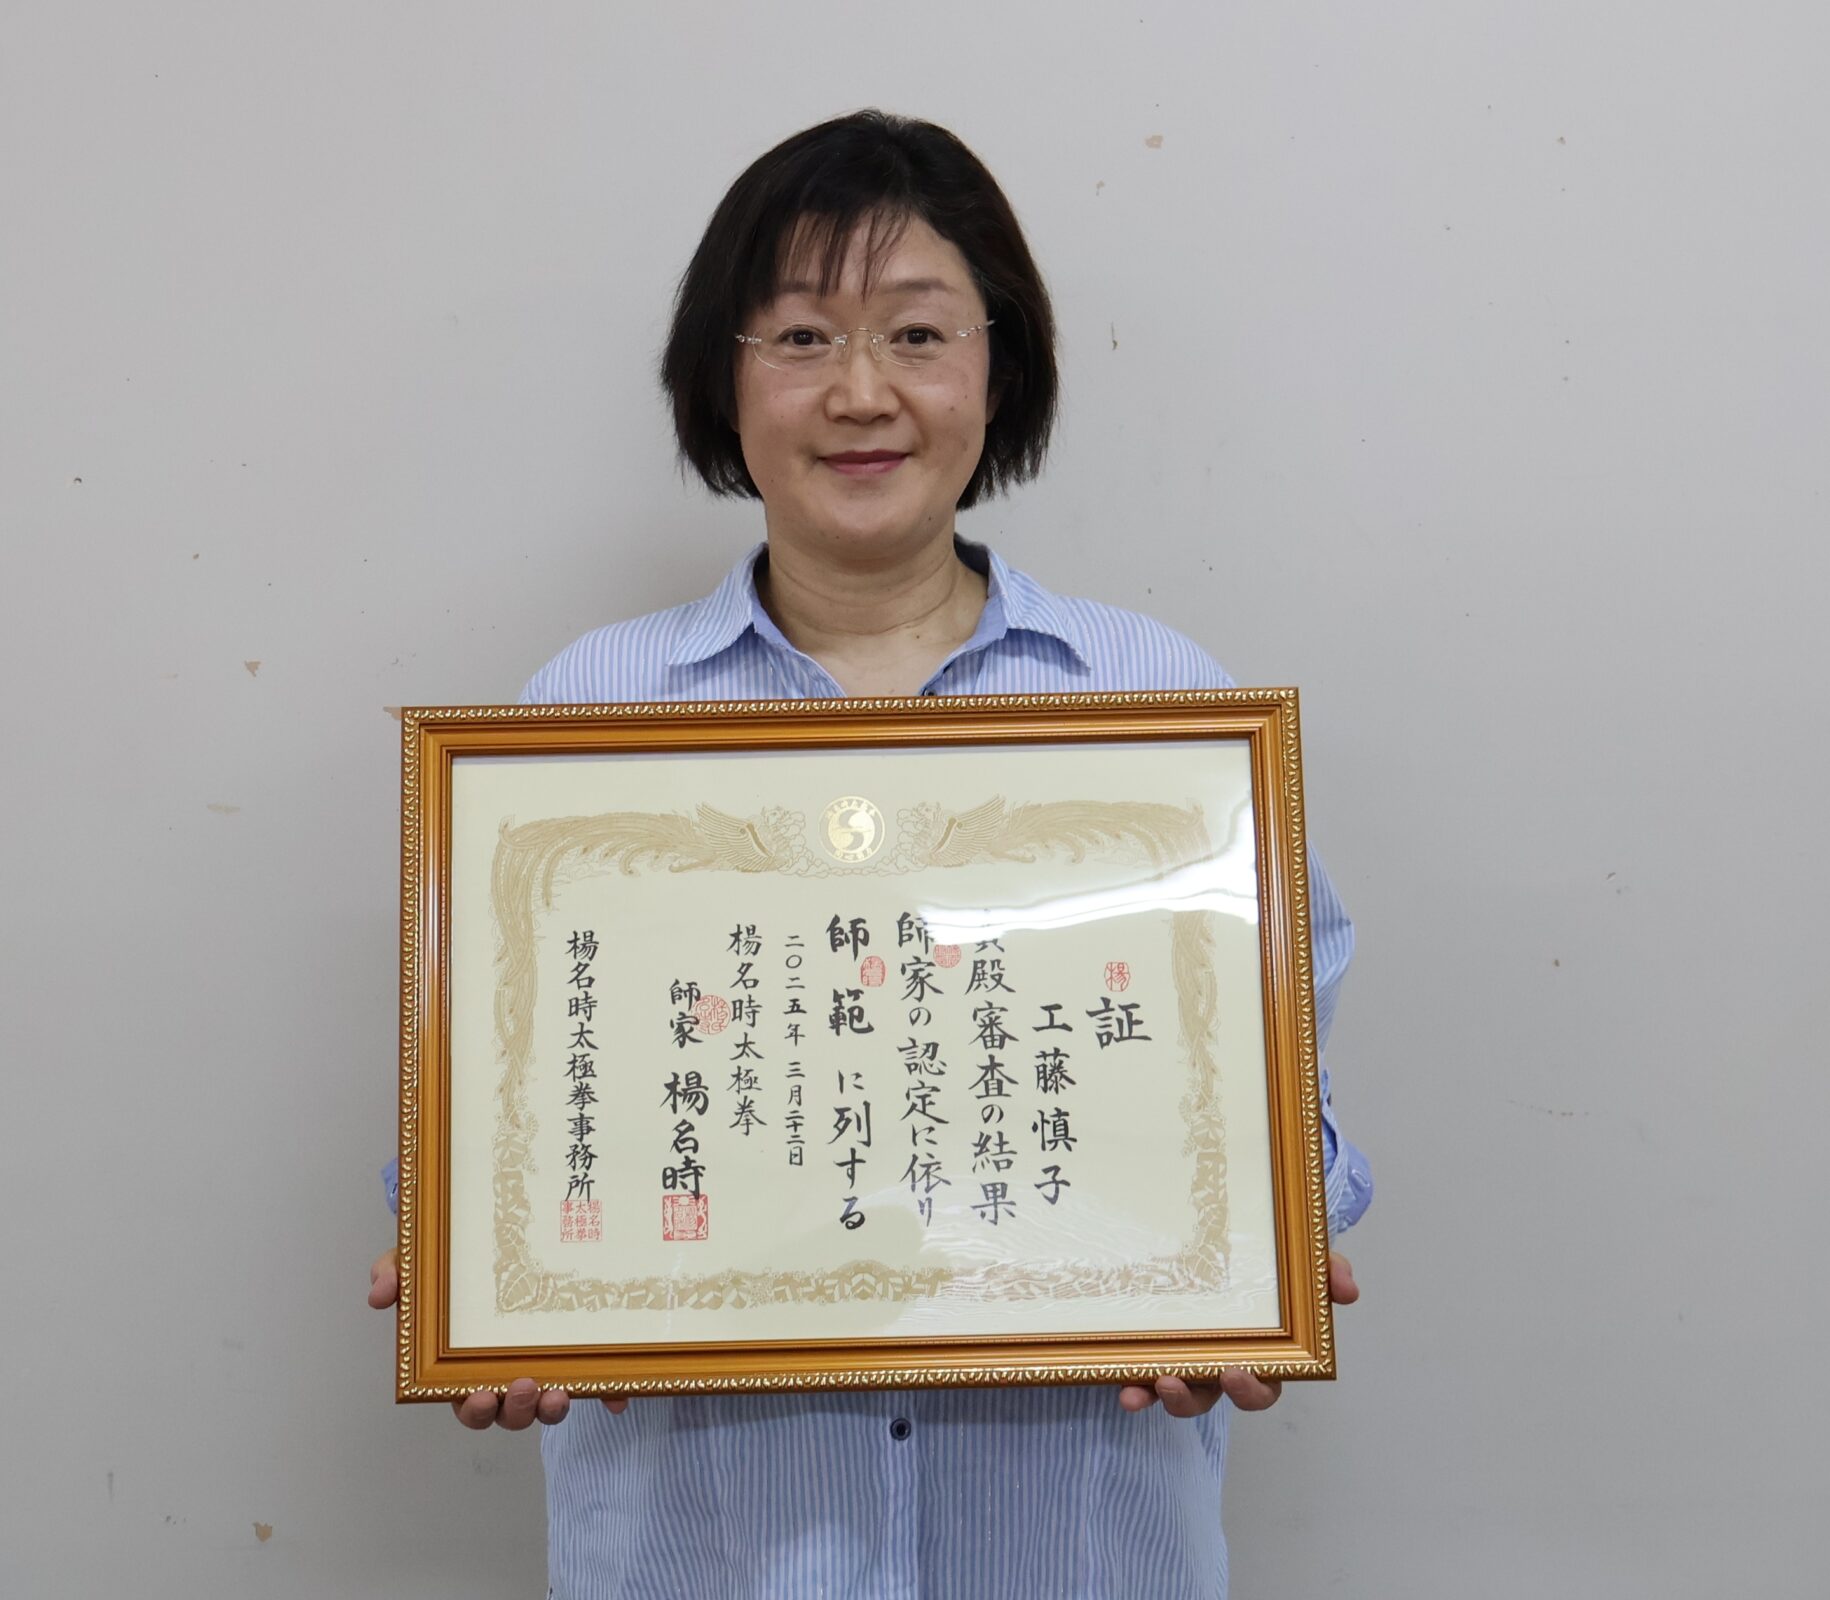 証
工藤慎子
殿審査の結果
師家の認定に依り
師範に列する
二〇二五年三月二十二日
楊名時太極拳
師家 楊名時
楊名時太極拳事務所
楊
楊名時
太極拳
事務所